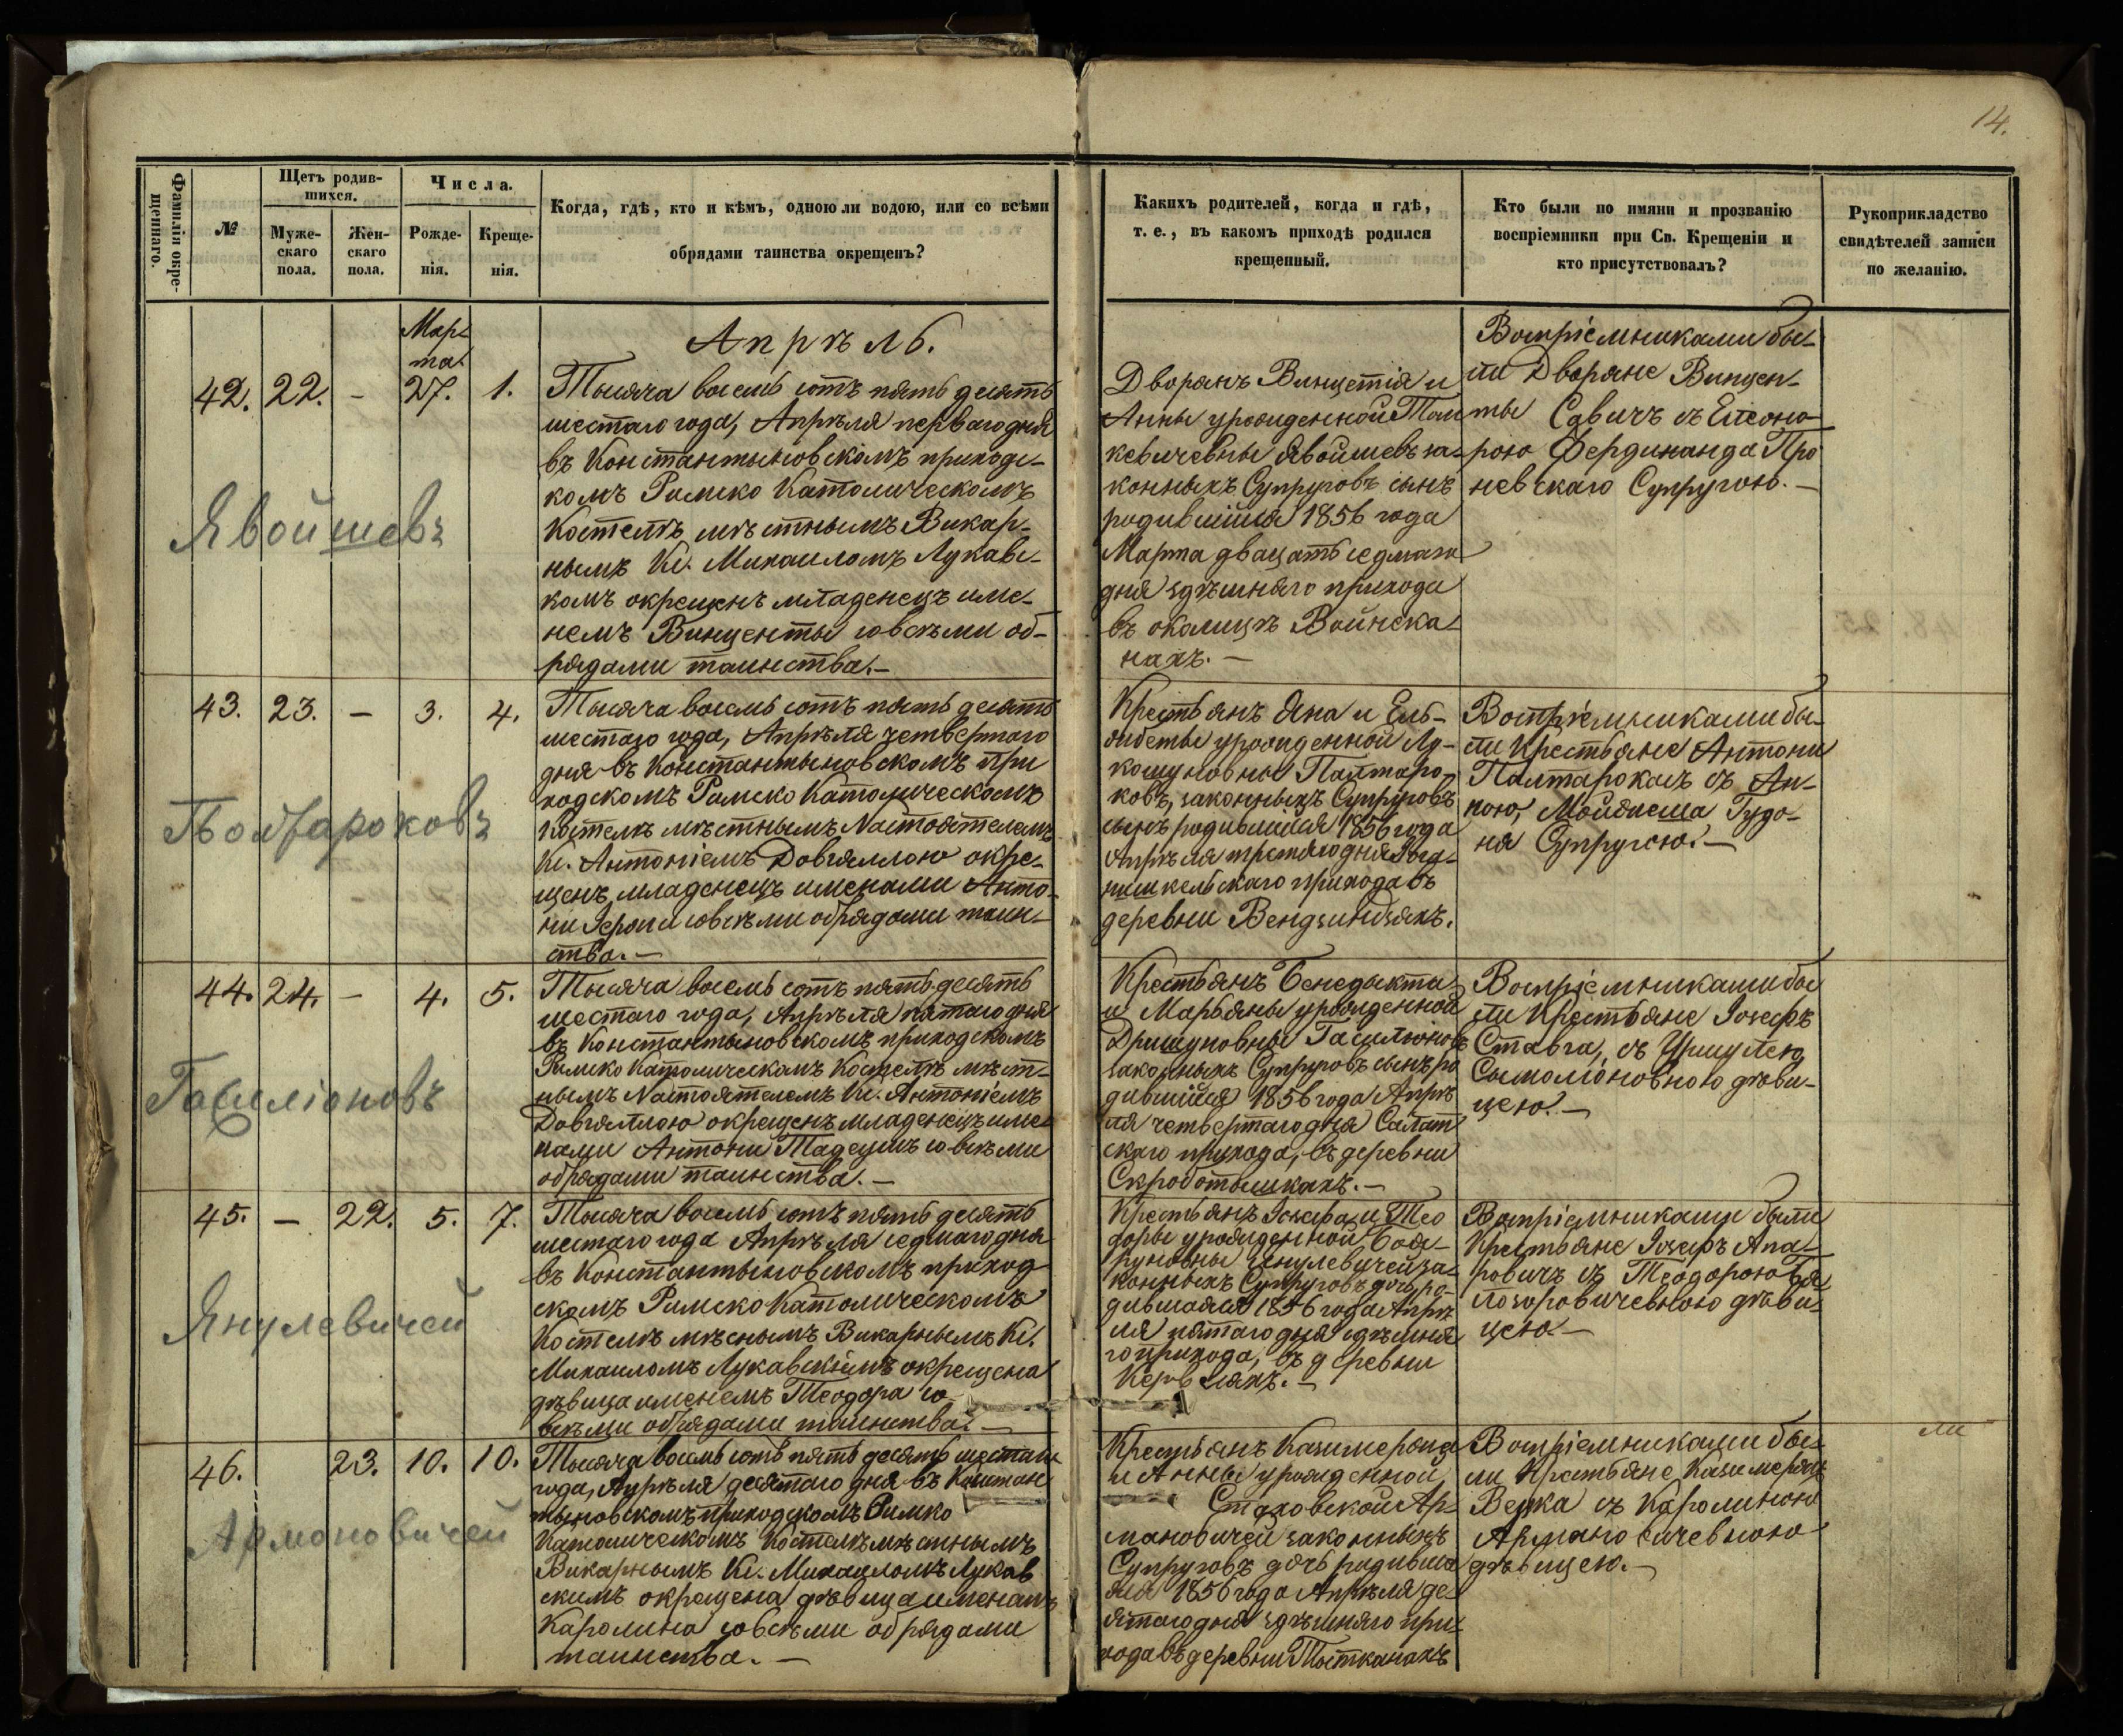 14.
Фамилія окре-
щеннаго.
№
Щетъ родив-
шихся.
Муже-
скаго
пола.
Жен-
скаго
пола.
Числа.
Рожде-
нія.
Креще-
нія.
Когда, гдѣ, кто и кѣмъ, одною ли водою, или со всѣми
обрядами таинства окрещенъ?
Какихъ родителей, когда и гдѣ,
т. е., въ какомъ приходѣ родился
крещенный.
Кто были по имяни и прозванію
воспріемники при Св. Крещеніи и
кто присутствовалъ?
Рукоприкладство
свидѣтелей записи
по желанію.
Апрѣль.
Явойшевъ
42. 22. - Мар-
та
27. 1.
Тысяча восемь сотъ пять десять
шестаго года, Апрѣля перваго дня
въ Константыновскомъ приходс-
комъ Римско Католическомъ
Костелѣ мѣстнымъ Викар-
нымъ Кс. Михаиломъ Лукавс-
комъ окрещенъ младенецъ име-
немъ Винценты со всѣми об-
рядами таинства.-
Дворянъ Винцетія и
Анны урожденной Том
кевичевны Явойшевъ за-
конныхъ Супруговъ сынъ
родившійся 1856 года
Марта двацать седмаго
дня здѣшняго прихода
въ околицѣ Войнска-
нахъ.-
Воспріемниками бы-
ли Дворяне Винцен-
ты Савичъ съ Елеоно-
рою Фердинанда Про
невскаго Супругою.-
Полтароковъ
43. 23. - 3. 4.
Тысяча восемь сотъ пять десять
шестаго года, Апрѣля четвертаго
дня въ Константыновскомъ при
ходскомъ Римско Католическомъ
Костелѣ мѣстнымъ Настоятелемъ
Кс. Антоніемъ Довгяллою окре-
щенъ младенецъ именами Анто-
ни со всѣми обрядами таин-
ства.-
Крестьянъ Яна и Ель-
жбеты урожденной Лу-
кошуновны Полтаро-
ковъ, законныхъ Супруговъ
сынъ родившійся 1856 года
Апрѣля третяго дня
прихода въ
деревни
Воспріемниками бы-
ли Крестьяне Антони
Палтарокасъ съ Ан-
ною, Гудо-
ня Супругою.-
Гасиліоновъ
44. 24. - 4. 5.
Тысяча восемь сотъ пять десять
шестаго года, Апрѣля пятаго дня
въ Константыновскомъ приходскомъ
Римско Католическомъ Костелѣ мѣст-
нымъ Настоятелемъ Кс. Антоніемъ
Довгяллою окрещенъ младенецъ име-
нами Антони Тадеушъ со всѣми
обрядами таинства.-
Крестьянъ Бенедыкта
и Марьяны урожденной
Гасильоновъ
законныхъ Супруговъ сынъ ро
дившійся 1856 года Апрѣ
ля четвертаго дня Салат
скаго прихода, въ деревни
Скроботышкахъ.-
Воспріемниками бы
ли Крестьяне Іозефъ
Ставга, съ Уршулею
дѣви-
цею.-
Янулевичей
45. - 22. 5. 7.
Тысяча восемь сотъ пять десять
шестаго года Апрѣля седмаго дня
въ Константыновскомъ приход
скомъ Римско Католическомъ
Костелѣ мѣснымъ Викарнымъ Кс.
Михаиломъ Лукавскимъ окрещена
дѣвица именемъ Теодора со
всѣми обрядами таинства.-
Крестьянъ Іозефа и Тео
доры урожденной
Янулевичей за-
конныхъ Супруговъ дочь ро-
дившаяся 1856 года Апрѣ
ля пятаго дня здѣшня
го прихода, въ деревни
Воспріемниками были
Крестьяне Іозефъ
съ Теодорою
дѣви-
цею.-
Армоновичей
46. 23. 10. 10.
Тысяча восемь сотъ пять десять шестаго
года, Апрѣля десятаго дня въ Констан
тыновскомъ приходскомъ Римко
Католическомъ Костелѣ мѣстнымъ
Викарнымъ Кс. Михаиломъ Лукав
скимъ окрещена дѣвица именамъ
Каролина со всѣми обрядами
таинства.-
Крестьянъ Казимержа
и Анны урожденной
Стаховской Ар-
мановичей законныхъ
Супруговъ дочь родивша
яся 1856 года Апрѣля де-
сятаго дня здѣшняго при-
хода въ деревни Тытканахъ
Воспріемниками бы-
ли Крестьяне Казимержъ
съ Каролиною
Армановичевною
дѣвицею.-